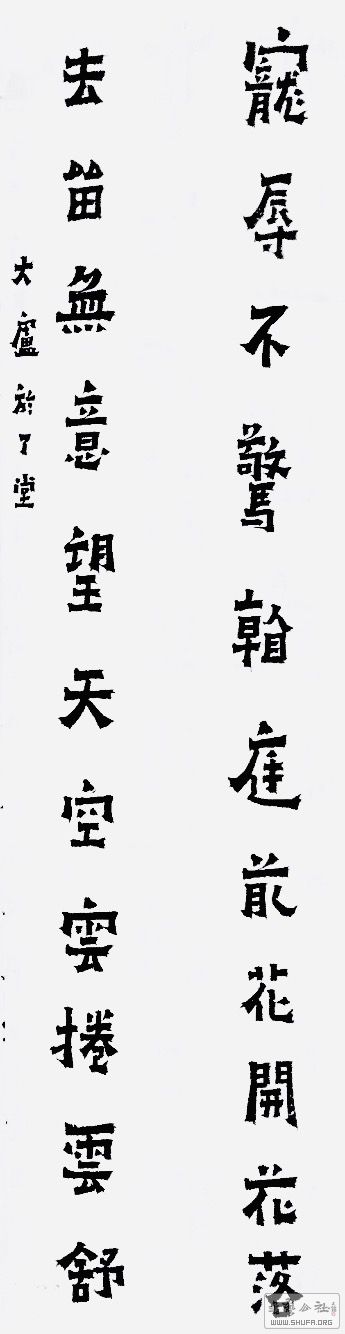 寵辱不驚看庭前花開花落
去留無意望天空雲捲雲舒
大廬於了堂
公社
WWW.SHUFA.ORG